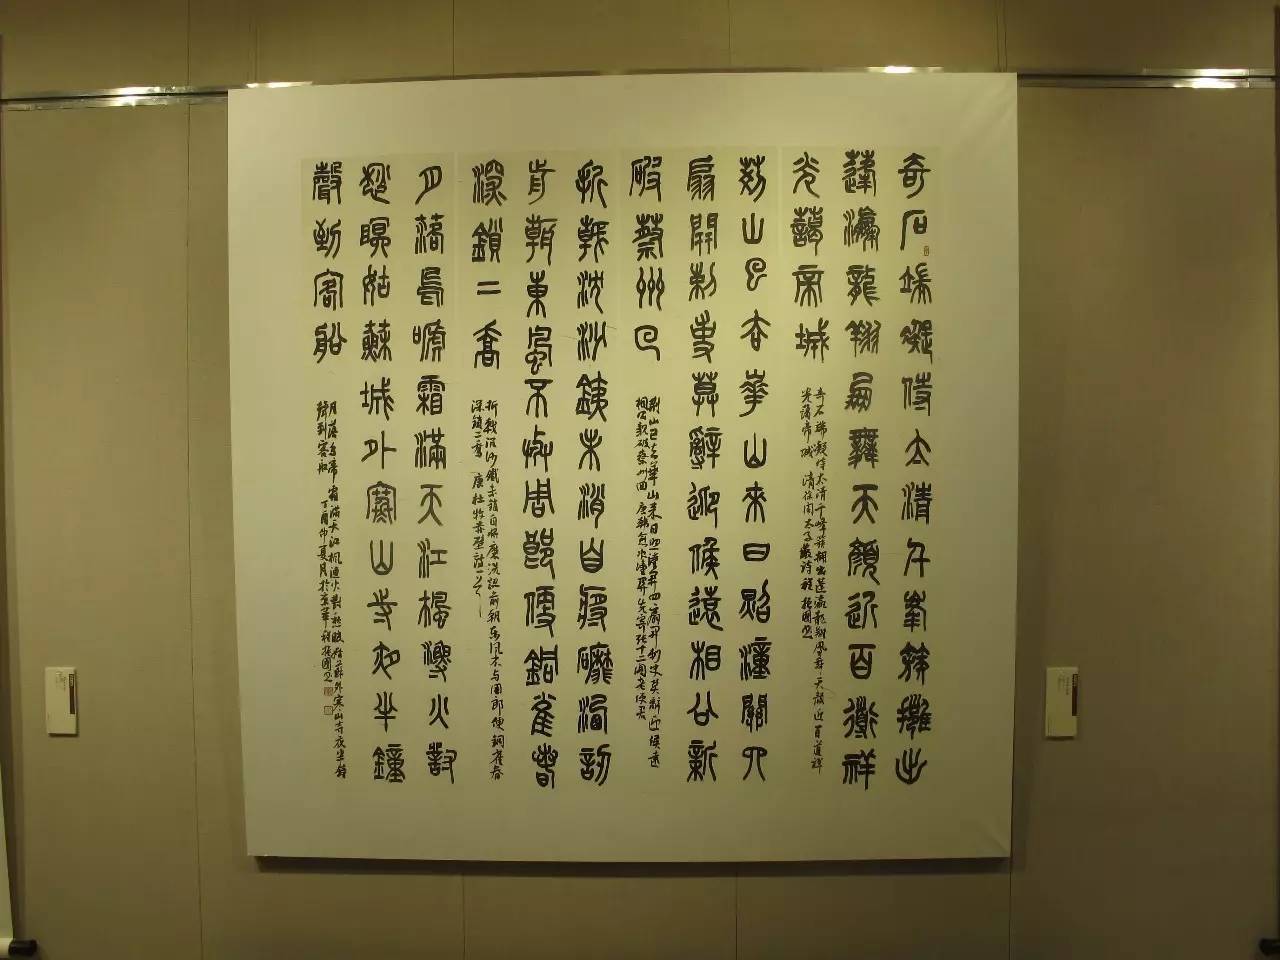 奇石端凝侍太清千峯簇擁出
蓬瀛龍翔鳳舞天顏近百道祥
光藹帝城
奇石端凝侍太清千峰簇擁出蓬瀛龍翔鳳舞天顏近百道祥
光藹帝城 清
荊山已去華山來日照潼關四
扇開刺史莫辭迎候遠相公新
破蔡州回
荊山已去華山來日照潼關四扇開刺史莫辭迎候遠
相公新破蔡州回 唐韓愈次潼關先寄張十二閣老使君
折戟沈沙鐵未消自將磨洗認
前朝東風不與周郎便銅雀春
深鎖二喬
折戟沉沙鐵未銷自將磨洗認前朝東風不與周郎便銅雀春
深鎖二喬 唐杜牧赤壁詩一首
月落烏啼霜滿天江楓漁火對
愁眠姑蘇城外寒山寺夜半鐘
聲到客船
月落烏啼霜滿天江楓漁火對愁眠姑蘇城外寒山寺夜半鐘
聲到客船 丁酉仲夏月於京華程振國書